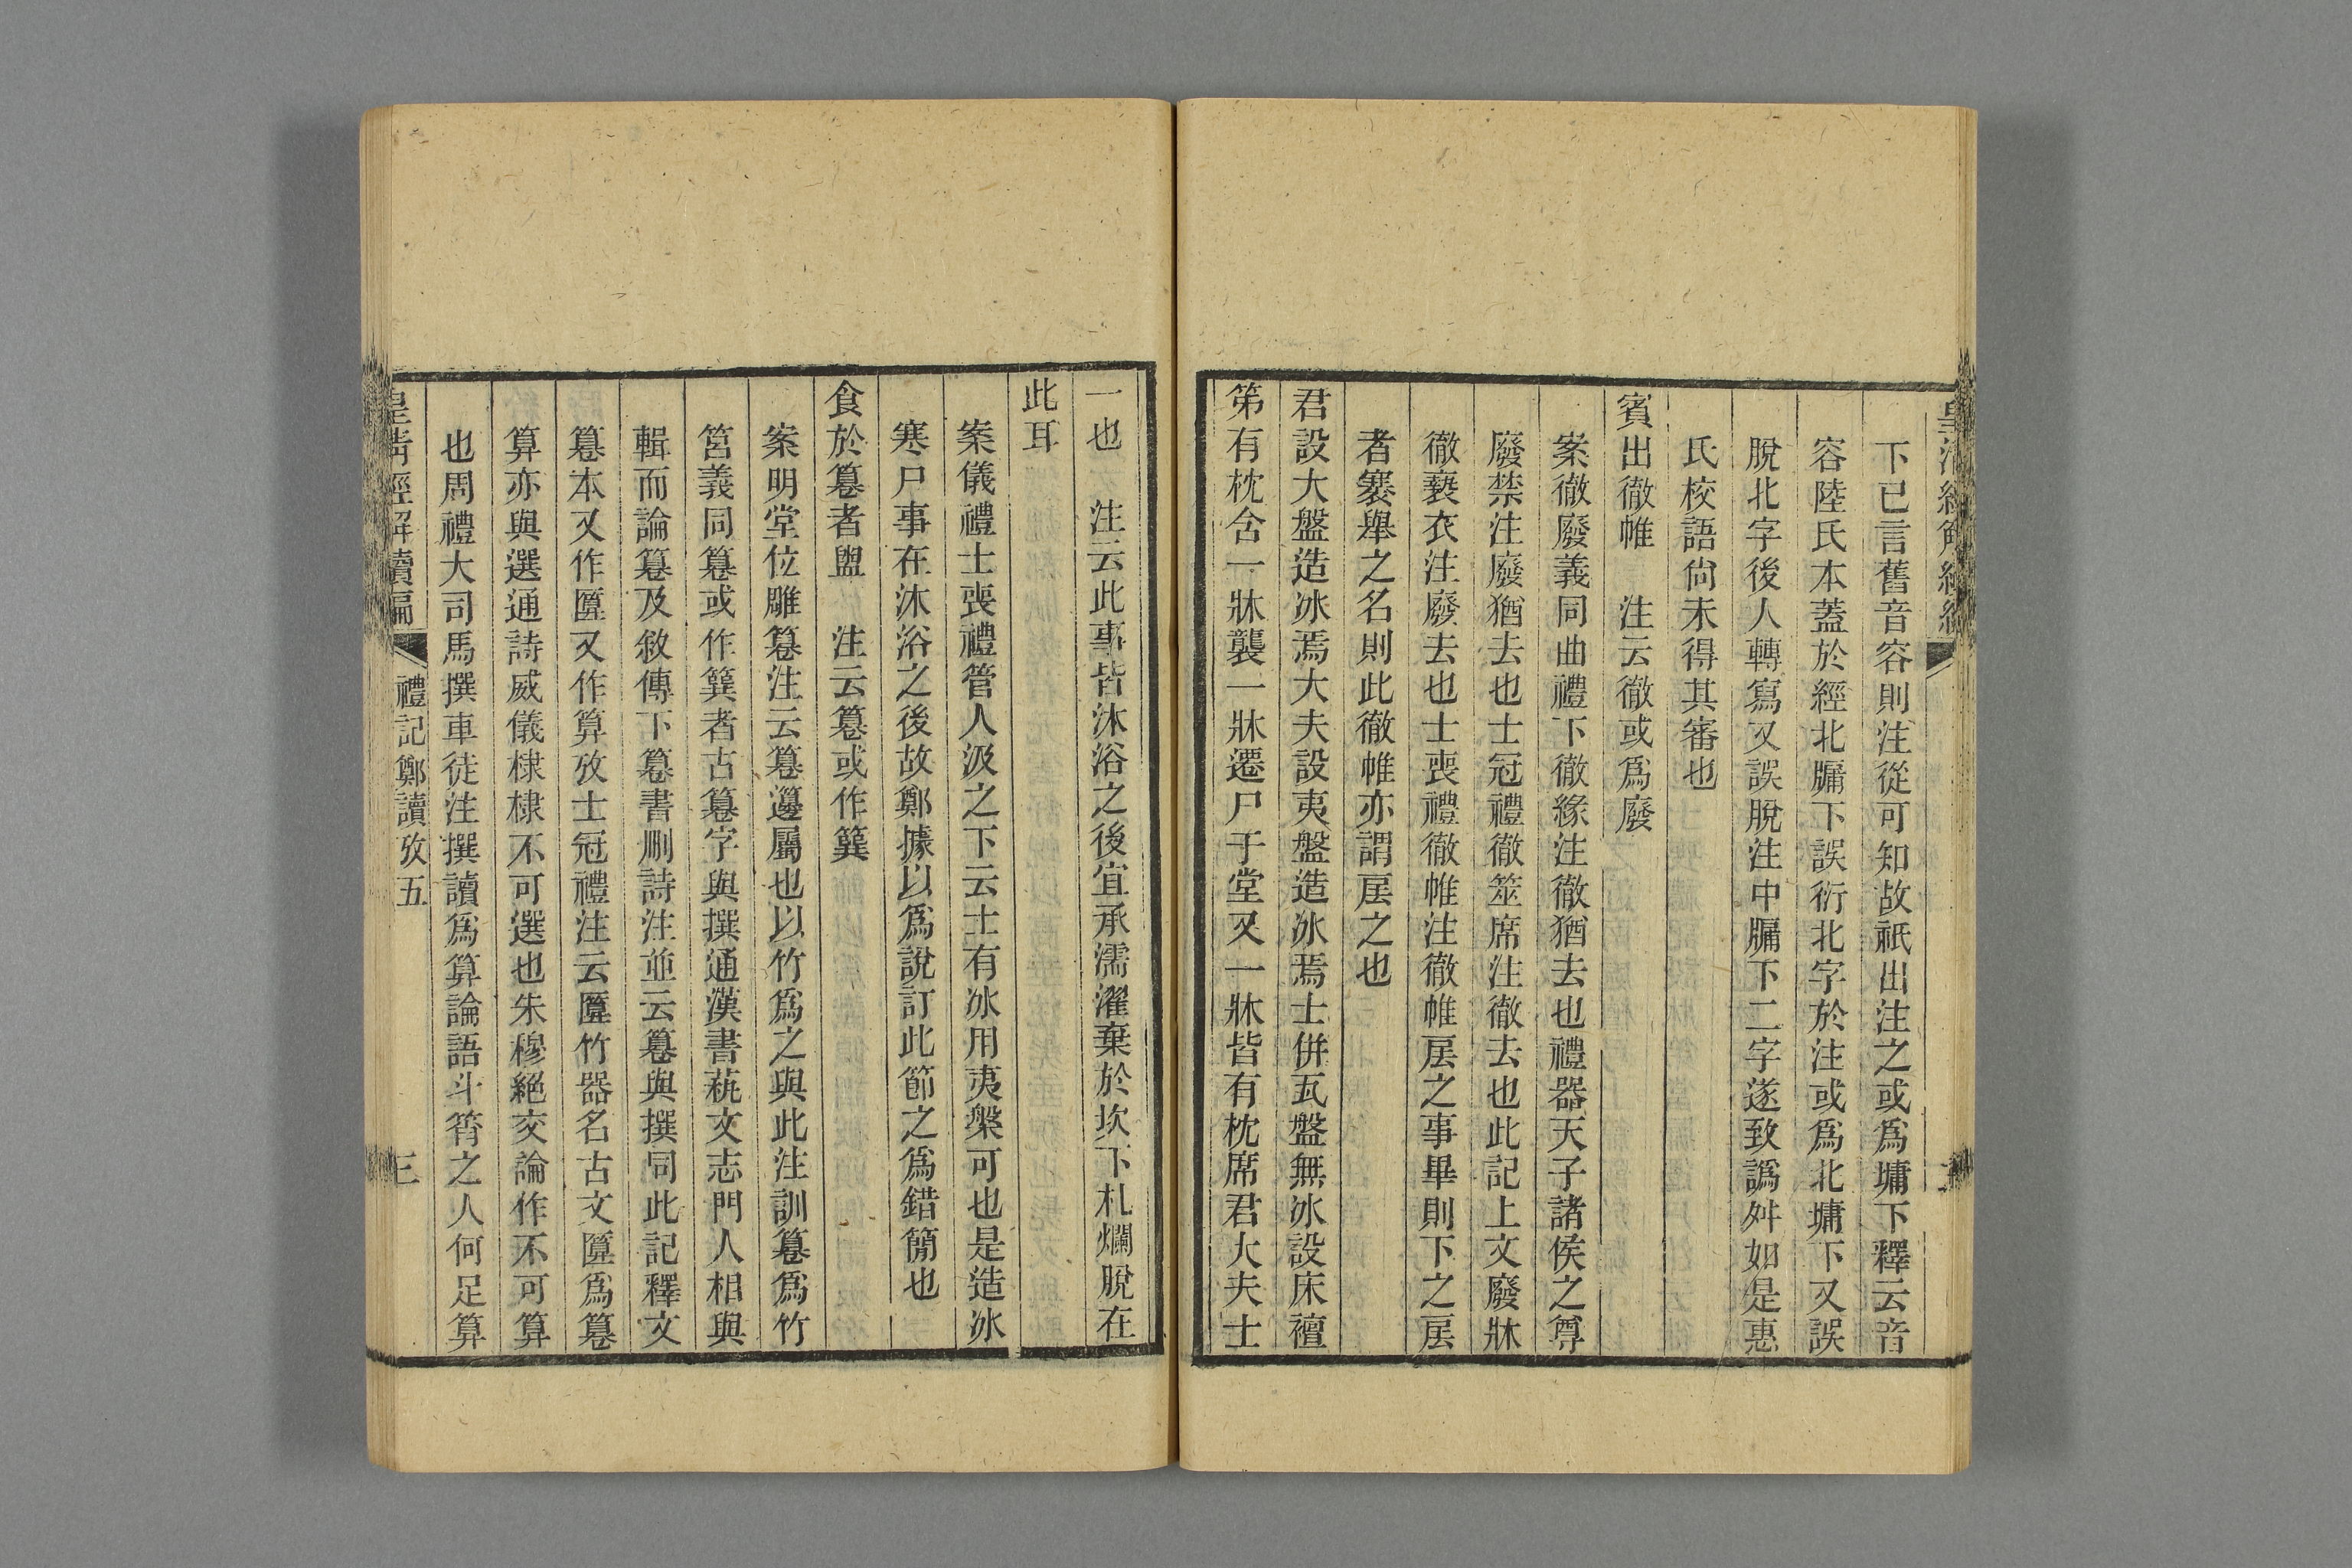 下已言舊音容則注從可知故祇出注之或爲墉下釋云音
容陸氏本蓋於經北牖下誤衍北字於注或爲北墉下又誤
脫北字後人轉寫又誤脫注中牖下二字遂致譌舛如是惠
氏校語尙未得其審也
賓出徹帷　注云徹或爲廢
案徹廢義同曲禮下徹緣注徹猶去也禮器天子諸侯之尊
廢禁注廢猶去也士冠禮徹筮席注徹去也此記上文廢牀
徹褻衣注廢去也士喪禮徹帷注徹帷㞐之事畢則下之㞐
者褰舉之名則此徹帷亦謂㞐之也
君設大盤造冰焉大夫設夷盤造冰焉士併瓦盤無冰設床襢
第有枕含一牀襲一牀遷尸于堂又一牀皆有枕席君大夫士
一也　注云此事皆沐浴之後宜承濡濯棄於坎下札爛脫在
此耳
案儀禮士喪禮管人汲之下云士有冰用夷槃可也是造冰
寒尸事在沐浴之後故鄭據以爲說訂此節之爲錯簡也
食於篹者盥　注云篹或作簨
案明堂位雕篹注云篹籩屬也以竹爲之與此注訓篹爲竹
筥義同篹或作簨者古篹字與撰通漢書蓺文志門人相與
輯而論篹及敘傳下篹書刪詩注並云篹與撰同此記釋文
篹本又作匴又作算攷士冠禮注云匴竹器名古文匴爲篹
算亦與選通詩威儀棣棣不可選也朱穆絕交論作不可算
也周禮大司馬撰車徒注撰讀爲算論語斗筲之人何足算
皇清經解續編　禮記鄭讀攷五　三